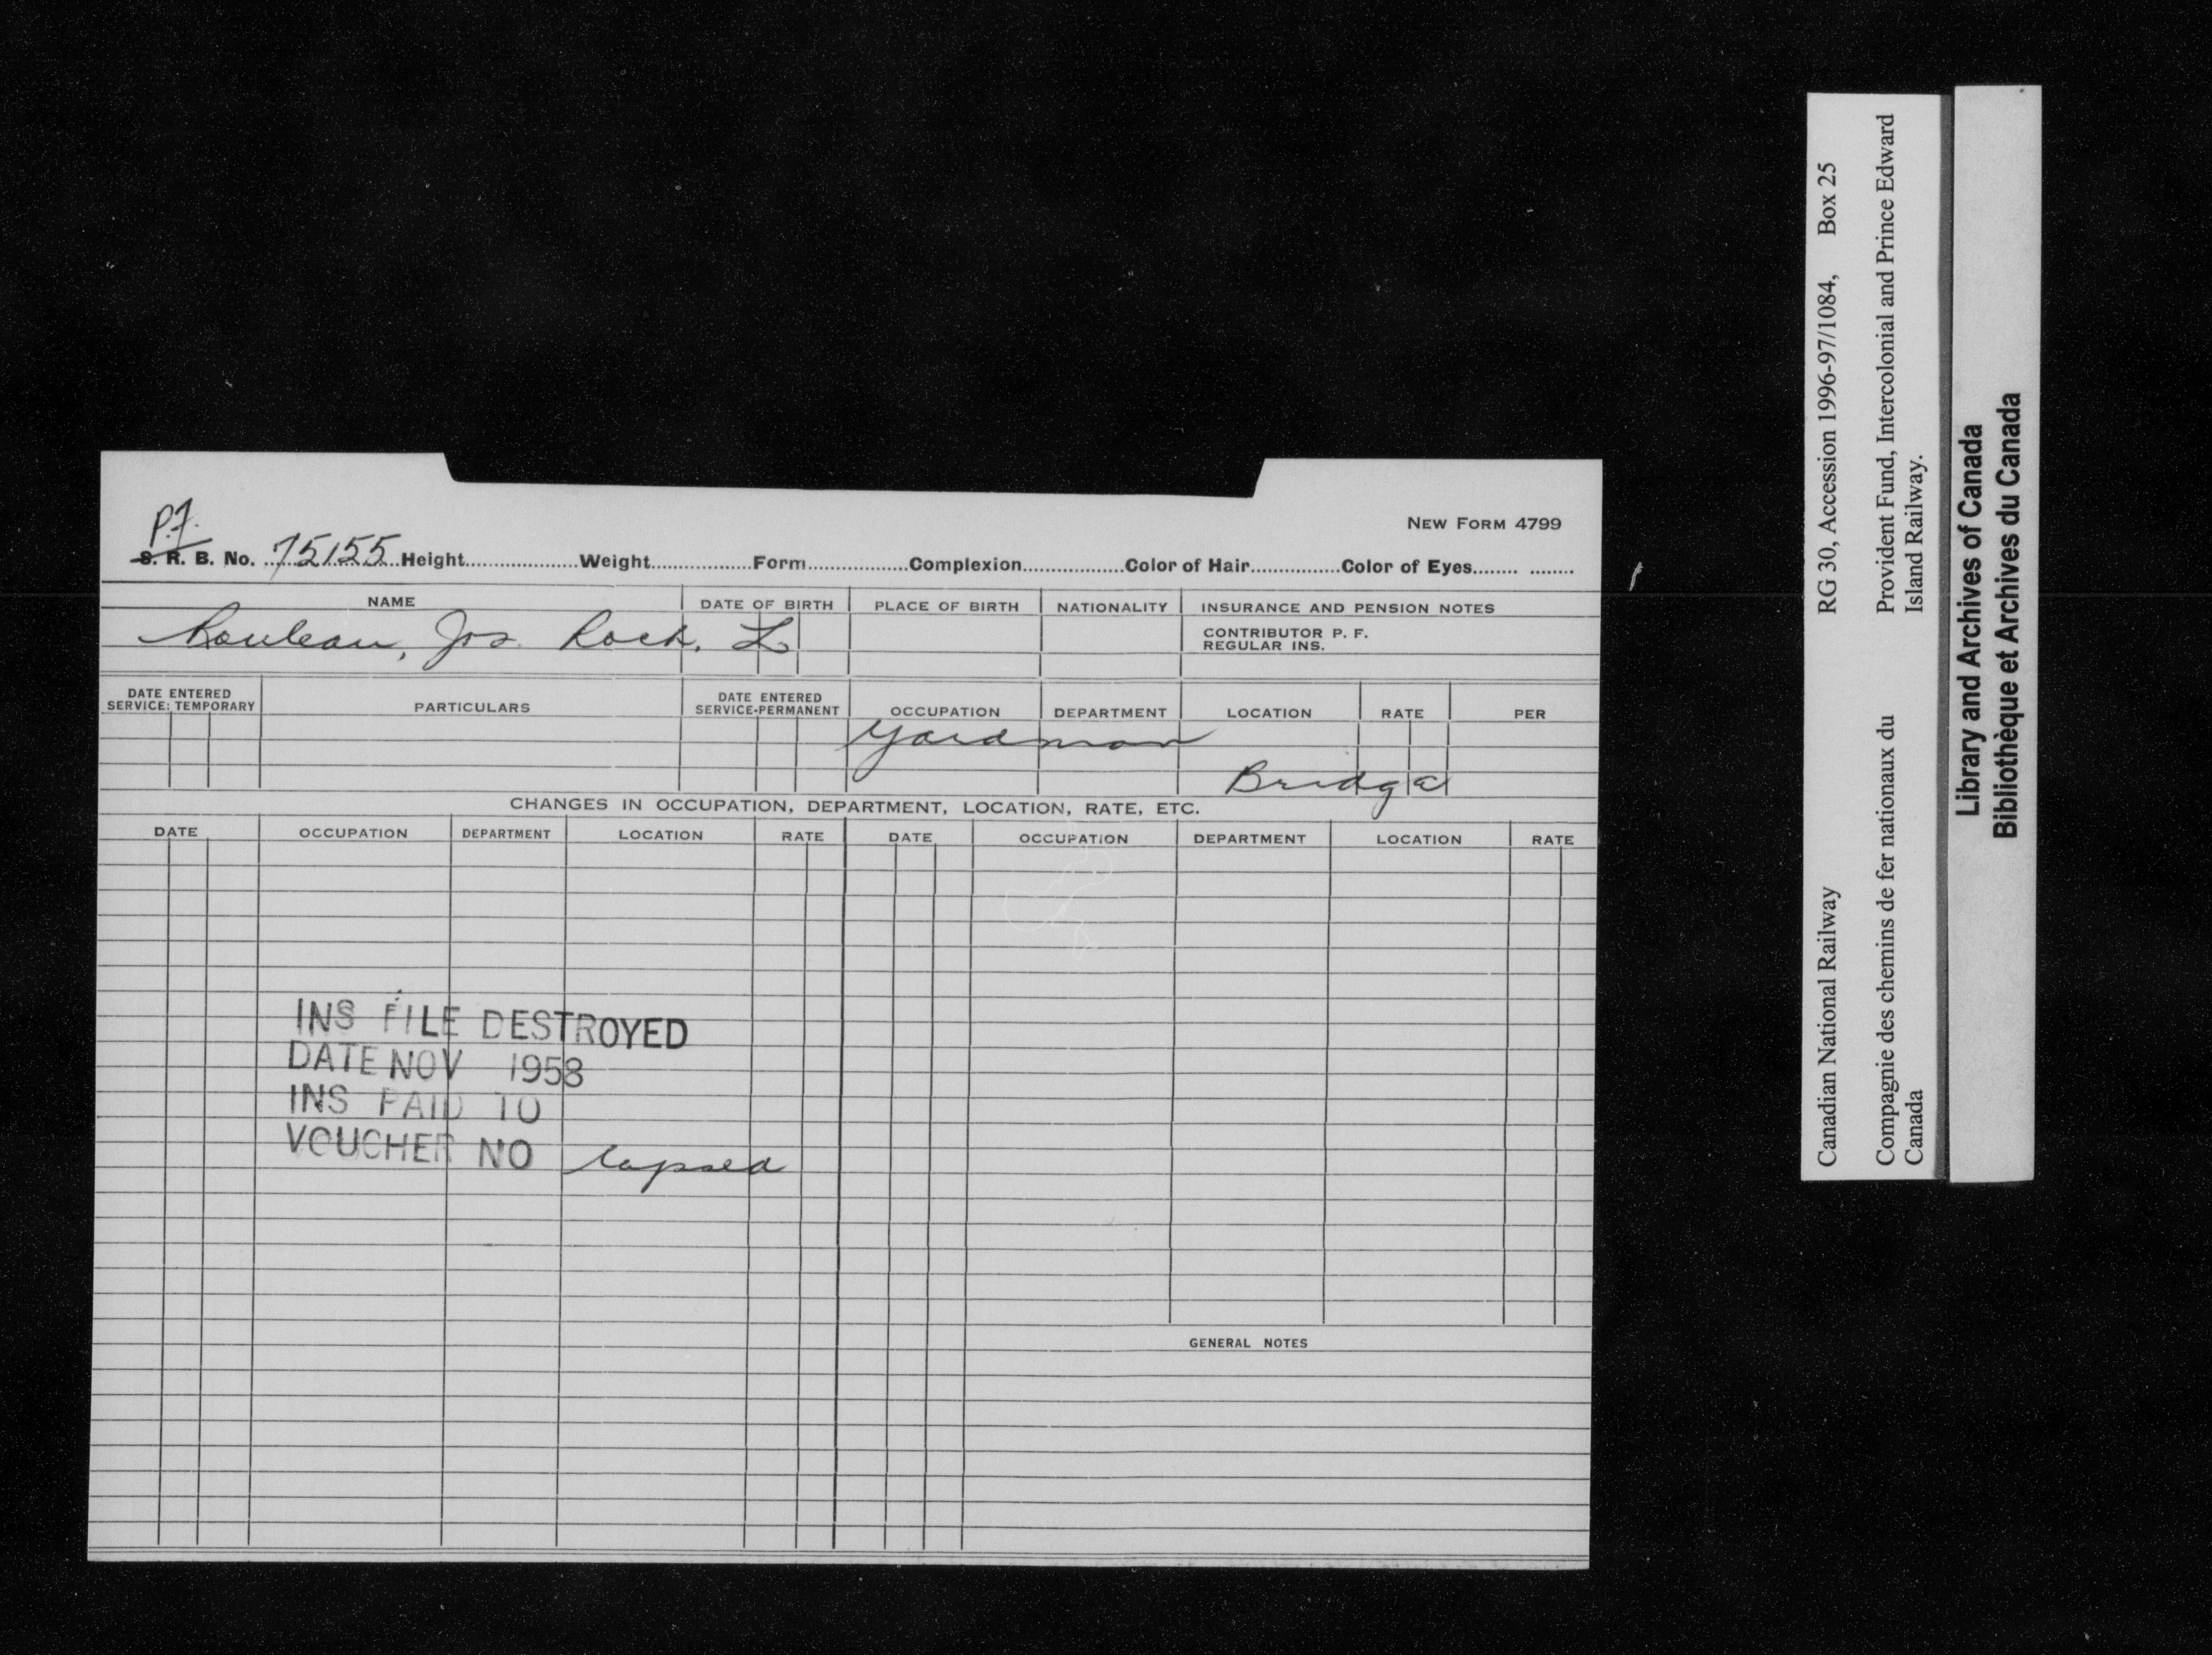 NEW FORM 4799
P.F.
S. R. B. No. 75155 Height Weight Form Complexion Color of Hair Color of Eyes
NAME DATE OF BIRTH PLACE OF BIRTH NATIONALITY INSURANCE AND PENSION NOTES
Rouleau, Jos. Roch. L
CONTRIBUTOR P. F.
REGULAR INS.
DATE ENTERED SERVICE: TEMPORARY PARTICULARS DATE ENTERED SERVICE-PERMANENT OCCUPATION DEPARTMENT LOCATION RATE PER
Yardman
CHANGES IN OCCUPATION, DEPARTMENT, LOCATION, RATE, ETC.
DATE OCCUPATION DEPARTMENT LOCATION RATE DATE OCCUPATION DEPARTMENT LOCATION RATE
INS FILE DESTROYED
DATE NOV 1958
INS PAID TO
VOUCHER NO lapsed
GENERAL NOTES
Canadian National Railway RG 30, Accession 1996-97/1084, Box 25
Compagnie des chemins de fer nationaux du Provident Fund, Intercolonial and Prince Edward
Canada Island Railway.
Library and Archives of Canada
Bibliothèque et Archives du Canada